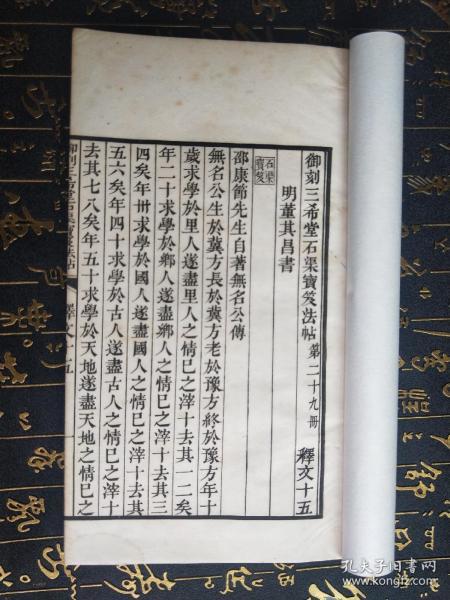 御刻三希堂石渠寶笈法帖 第二十九冊 釋文十五
明董其昌書
石渠寶笈
邵康節先生自著無名公傳
無名公生於冀方長於冀方老於豫方終於豫方年十
歲求學於里人遂盡里人之情巳之滓十去其一二矣
年二十求學於鄉人遂盡鄉人之情巳之滓十去其三
四矣年卅求學於國人遂盡國人之情巳之滓十去其
五六矣年四十求學於古人遂盡古人之情巳之滓十
去其七八矣年五十求學於天地遂盡天地之情巳之
釋文十五 一
孔夫子旧书网
kongfz.com